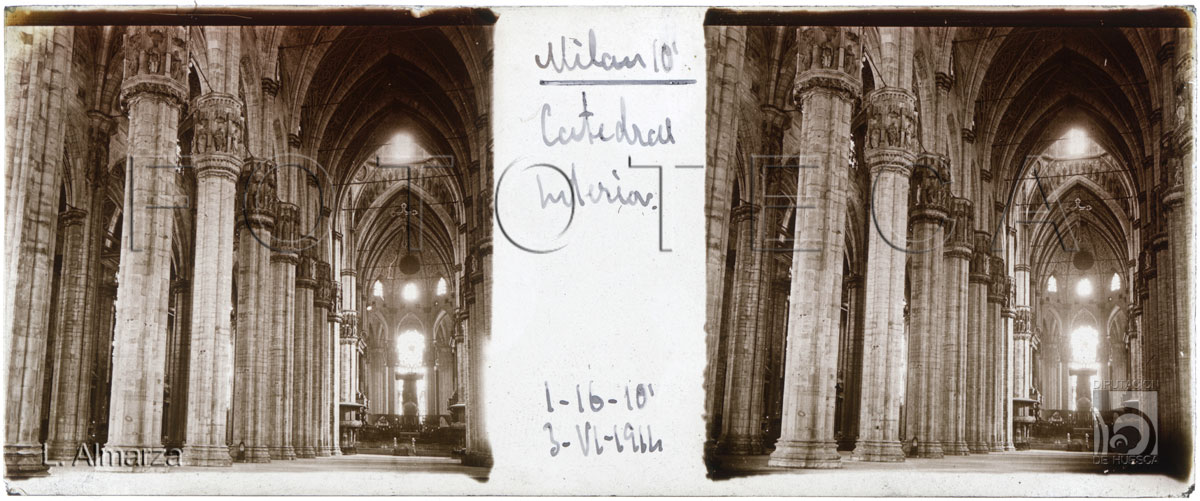 Milan 10'
Catedral
Interior.
1-16-10'
3-VI-1914
FOTOTECA
L. Almarza
DIPUTACIÓN
DE HUESCA